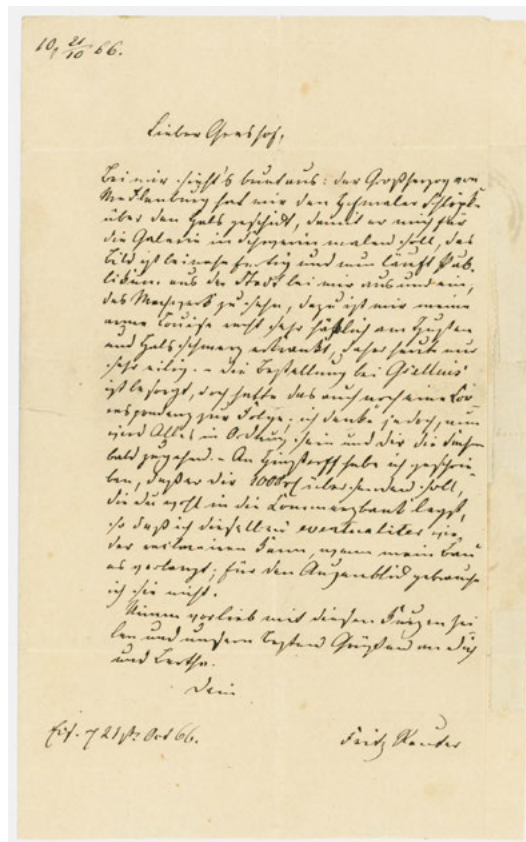 10, 21/10 66.
Lieber Grashof,
Bei mir sieht's bunt aus: der Großherzog von
Mecklenburg hat mir den Hofmaler Schlöpke
über den Hals geschickt, damit er mich für
die Galerie in Schwerin malen soll, das
Bild ist beinahe fertig und nun läuft Pub-
likum aus der Stadt bei mir aus und ein,
das Machwerk zu sehn, dazu ist mir meine
arme Louise recht sehr häßlich am Husten
und Halsschmerz erkrankt, daher heute nur
sehr eilig. – Die Bestellung bei
ist besorgt, doch hatte das auch noch eine Cor-
respondenz zur Folge; ich denke jedoch, nun
wird Alles in Ordnung sein und dir die
bald zugehen. – An Hinstorff habe ich geschrie-
ben, daß er dir 1000 übersenden soll,
die du wohl in die Commerzbank legst,
so daß ich dieselben eventualiter wie-
der kann, wenn mein Bau
es verlangt; für den Augenblick gebrauche
ich sie nicht.
Nimm vorlieb mit diesen kurzen Zei-
len und unsern besten Grüßen an dich
und Bertha.
Dein
Eis. d 21st Oct 66.
Fritz Reuter